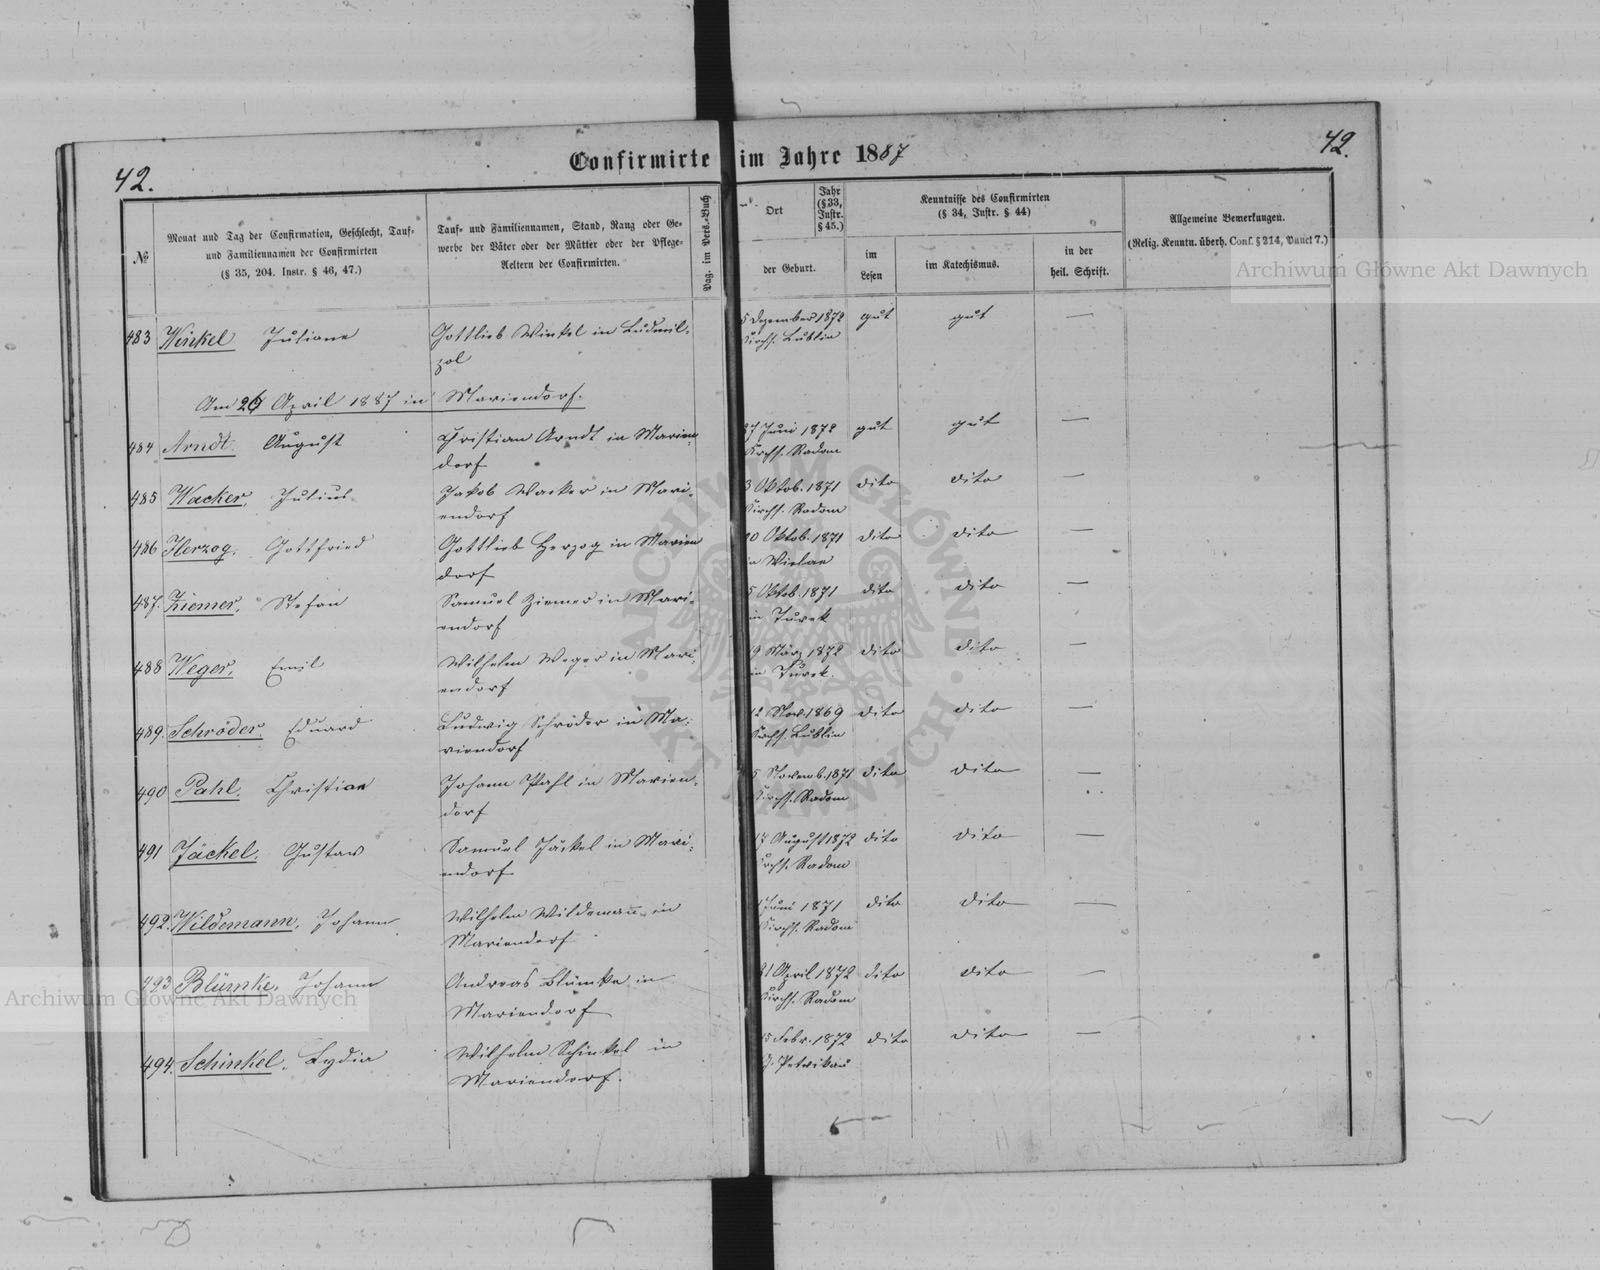 42.
Confirmirte im Jahre 1887
42.
№
Monat und Tag der Confirmation, Geschlecht, Tauf-
und Familiennamen der Confirmirten
(§ 35, 204. Instr. § 46, 47.)
Tauf- und Familiennamen, Stand, Rang oder Ge-
werbe der Väter oder der Mütter oder der Pflege-
Aeltern der Confirmirten.
Pag. im Pers.-Buch
Ort
Jahr
(§ 33,
Instr.
§ 45.)
der Geburt.
Kenntnisse des Confirmirten
(§ 34, Instr. § 44)
im
Lesen
im Katechismus.
in der
heil. Schrift.
Allgemeine Bemerkungen.
(Relig. Kenntn. überh. Conf. § 214, Punct 7.)
483 Winkel Juliane Gottlieb Winkel in Ludwil- 5 Dezember 1872 gut gut —
zol Kirchs. Lublin
Am 26 April 1887 in Mariendorf.
484 Arndt. August Christian Arndt in Marien- 27 Juni 1872 gut gut —
dorf Kirchs. Radom
485 Wacker, Julius Jakob Wacker in Mari- 3 Oktob. 1871 dito dito —
endorf Kirchs. Radom
486 Herzog. Gottfried Gottlieb Herzog in Marien 20 Oktob. 1871 dito dito —
dorf in
487. Ziemer, Stefan Samuel Ziemer in Mari- 5 Oktob. 1871 dito dito —
endorf in Turek
488 Weger, Emil Wilhelm Weger in Mari- 19 März 1872 dito dito —
endorf in Turek.
489. Schröder. Eduard Ludwig Schröder in Ma- 12 Nov. 1869 dito dito —
riendorf Kirchs. Lublin
490 Pahl. Christian Johann Pahl in Marien- 5 Novemb. 1871 dito dito —
dorf Kirchs. Radom
491 Jäckel. Gustav Samuel Jäckel in Mari- 17 August 1872 dito dito —
endorf Kirchs. Radom
492. Wildemann, Johann Wilhelm Wildemann in Juni 1871 dito dito —
Mariendorf Kirchs. Radom
493 Blümke, Johann Andreas Blümke in 21 April 1872 dito dito —
Mariendorf Kirchs. Radom
494. Schinkel. Lydia Wilhelm Schinkel in Febr. 1872 dito dito —
Mariendorf. Petrikau
Archiwum Główne Akt Dawnych
Archiwum Główne Akt Dawnych
ARCHIWUM GŁÓWNE AKT DAWNYCH